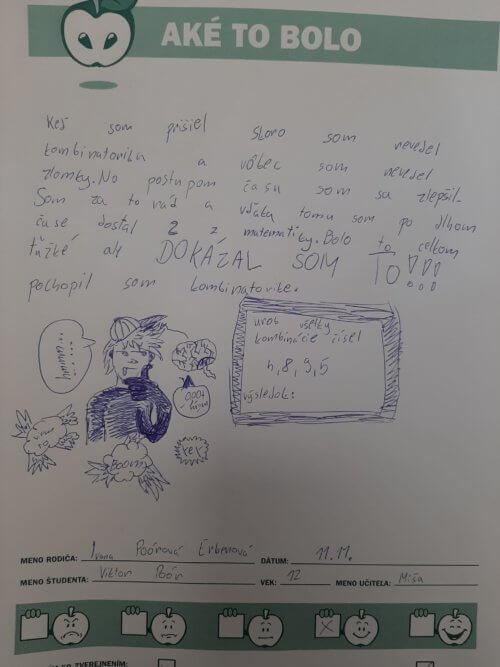 AKÉ TO BOLO
Keď som prišiel skoro som nevedel
kombinatoriku a vôbec som nevedel
zlomky. No postupom času som sa zlepšil.
Som za to rád a vďaka tomu som po dlhom
čase dostal 2 z matematiky. Bolo to celkom
ťažké ale DOKÁZAL SOM TO!!!
pochopil som kombinatorike.
urob všetky
kombinácie čísel
4,8,9,5
výsledok:
BOOM
KEK
MENO RODIČA: Ivana Poórová Erbenová DÁTUM: 11.11.
MENO ŠTUDENTA: Viktor Poór VEK: 12 MENO UČITEĽA: Miša